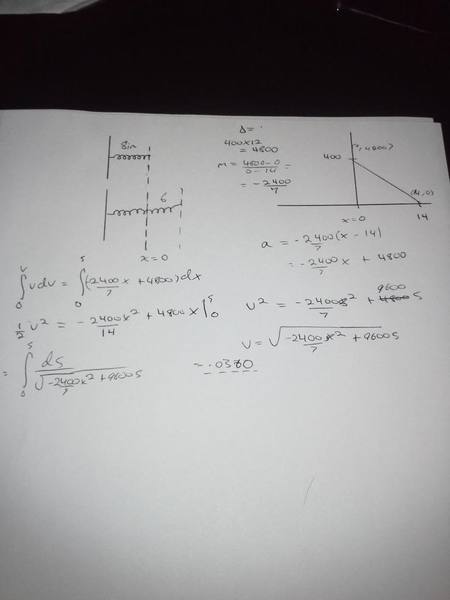 8in
6
x = 0
Δ =
400x12
= 4800
m = 4800-0 / 0-14 =
= -2400/7
(0, 4800)
400
(14, 0)
x = 0
14
a = -2400/7 (x - 14)
= -2400/7 x + 4800
∫₀ᵛ v dv = ∫₀ˢ (-2400/7 x + 4800) dx
1/2 v² = -2400x²/14 + 4800x |₀ˢ
v² = -2400s²/7 + 9600 s
v = √(-2400x²/7 + 9600s)
= ∫₀ˢ ds / √(-2400x²/7 + 9600s)
= .0380